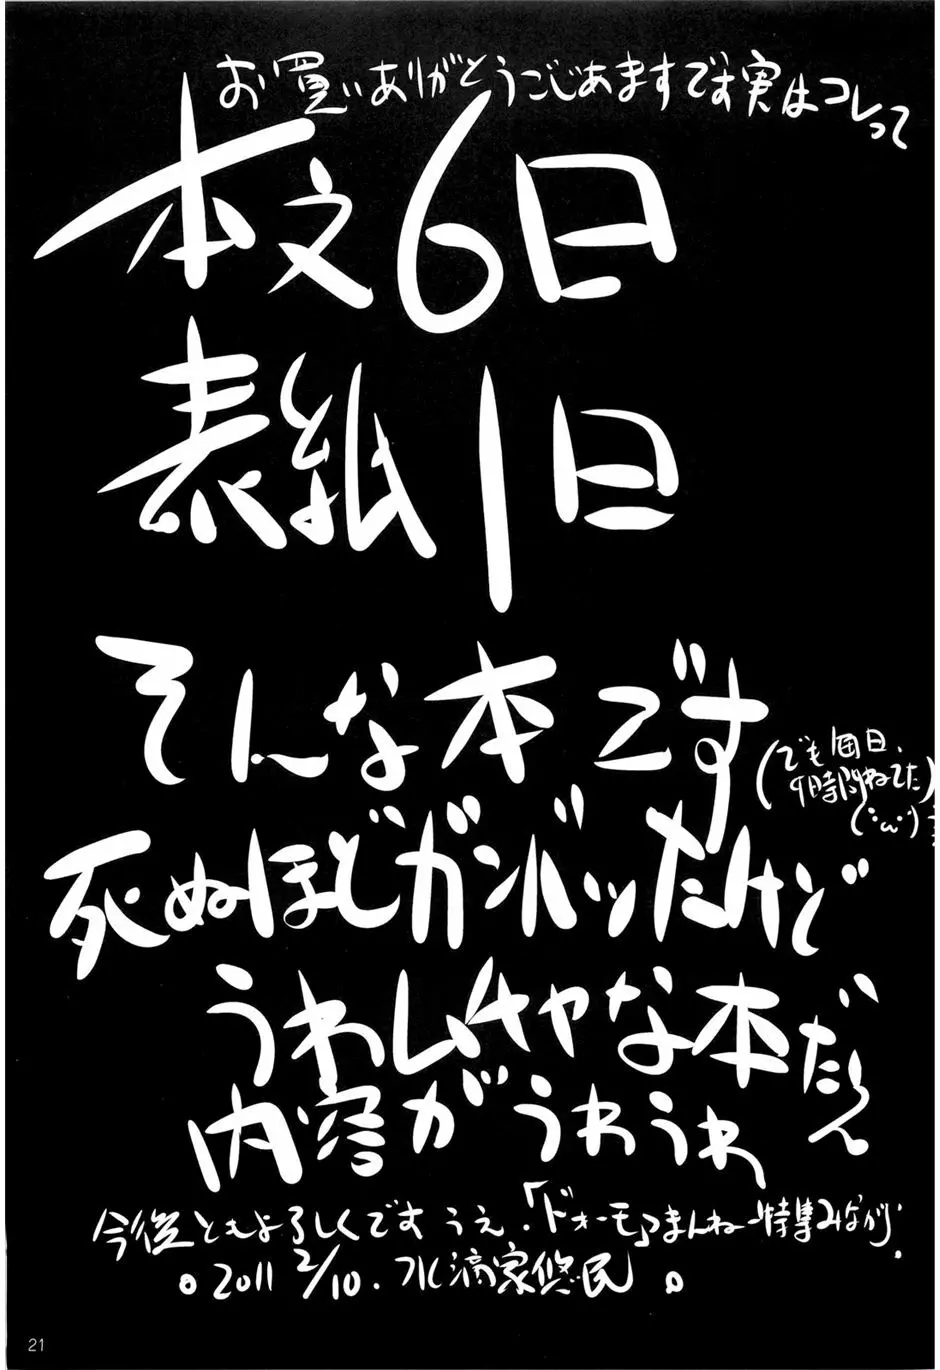 お買いありがとうごじあますです実はコレって
本文6日
表紙1日
そんな本です
(でも毎日、
9時間ねてた)
(･ω･)
死ぬほどガンバッたけど
うわムチャな本だ
内容がうわうわ
今後ともよろしくですうえ.「ドォーモ」まんねー特集みながら.
。2011 2/10. 水滴家悠民。
21